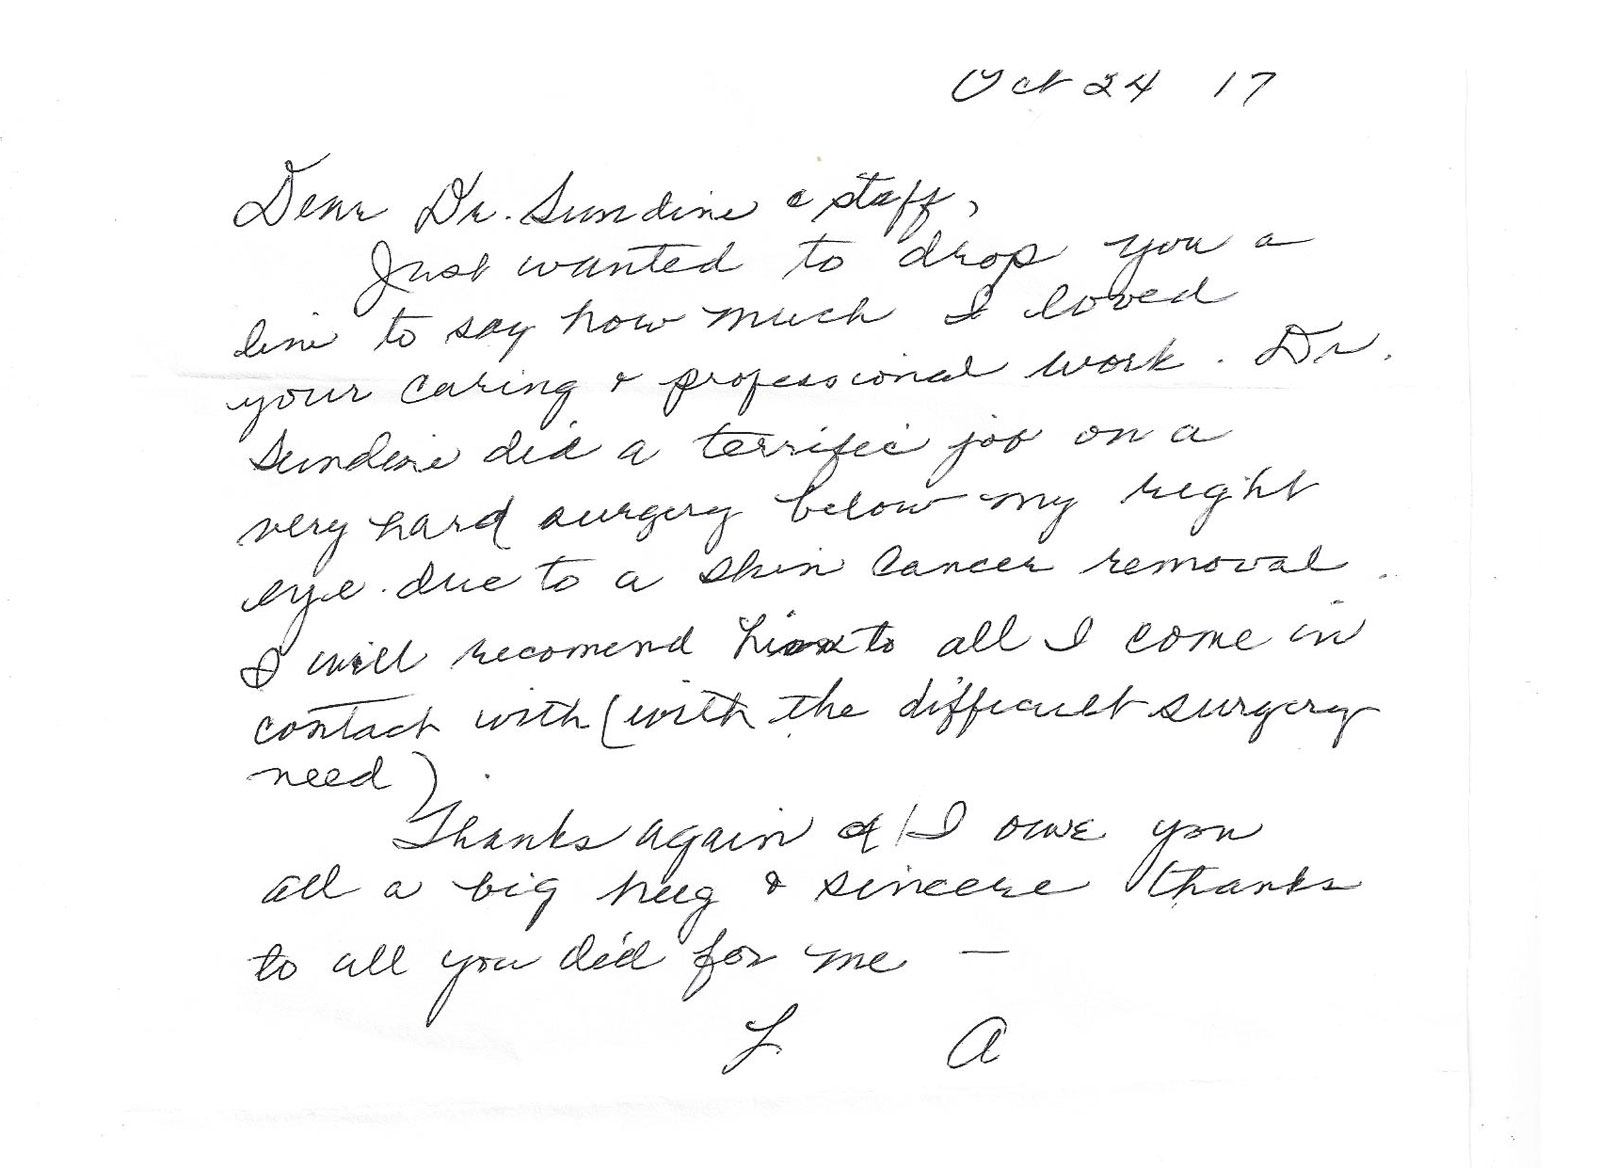 Oct 24 17
Dear Dr. Sundine & staff,
Just wanted to drop you a
line to say how much I loved
your caring & professional work. Dr.
Sundine did a terrific job on a
very hard surgery below my right
eye due to a skin cancer removal.
I will recomend him to all I come in
contact with (with the difficult surgery
need).
Thanks again & I owe you
all a big hug & sincere thanks
to all you did for me —
L A